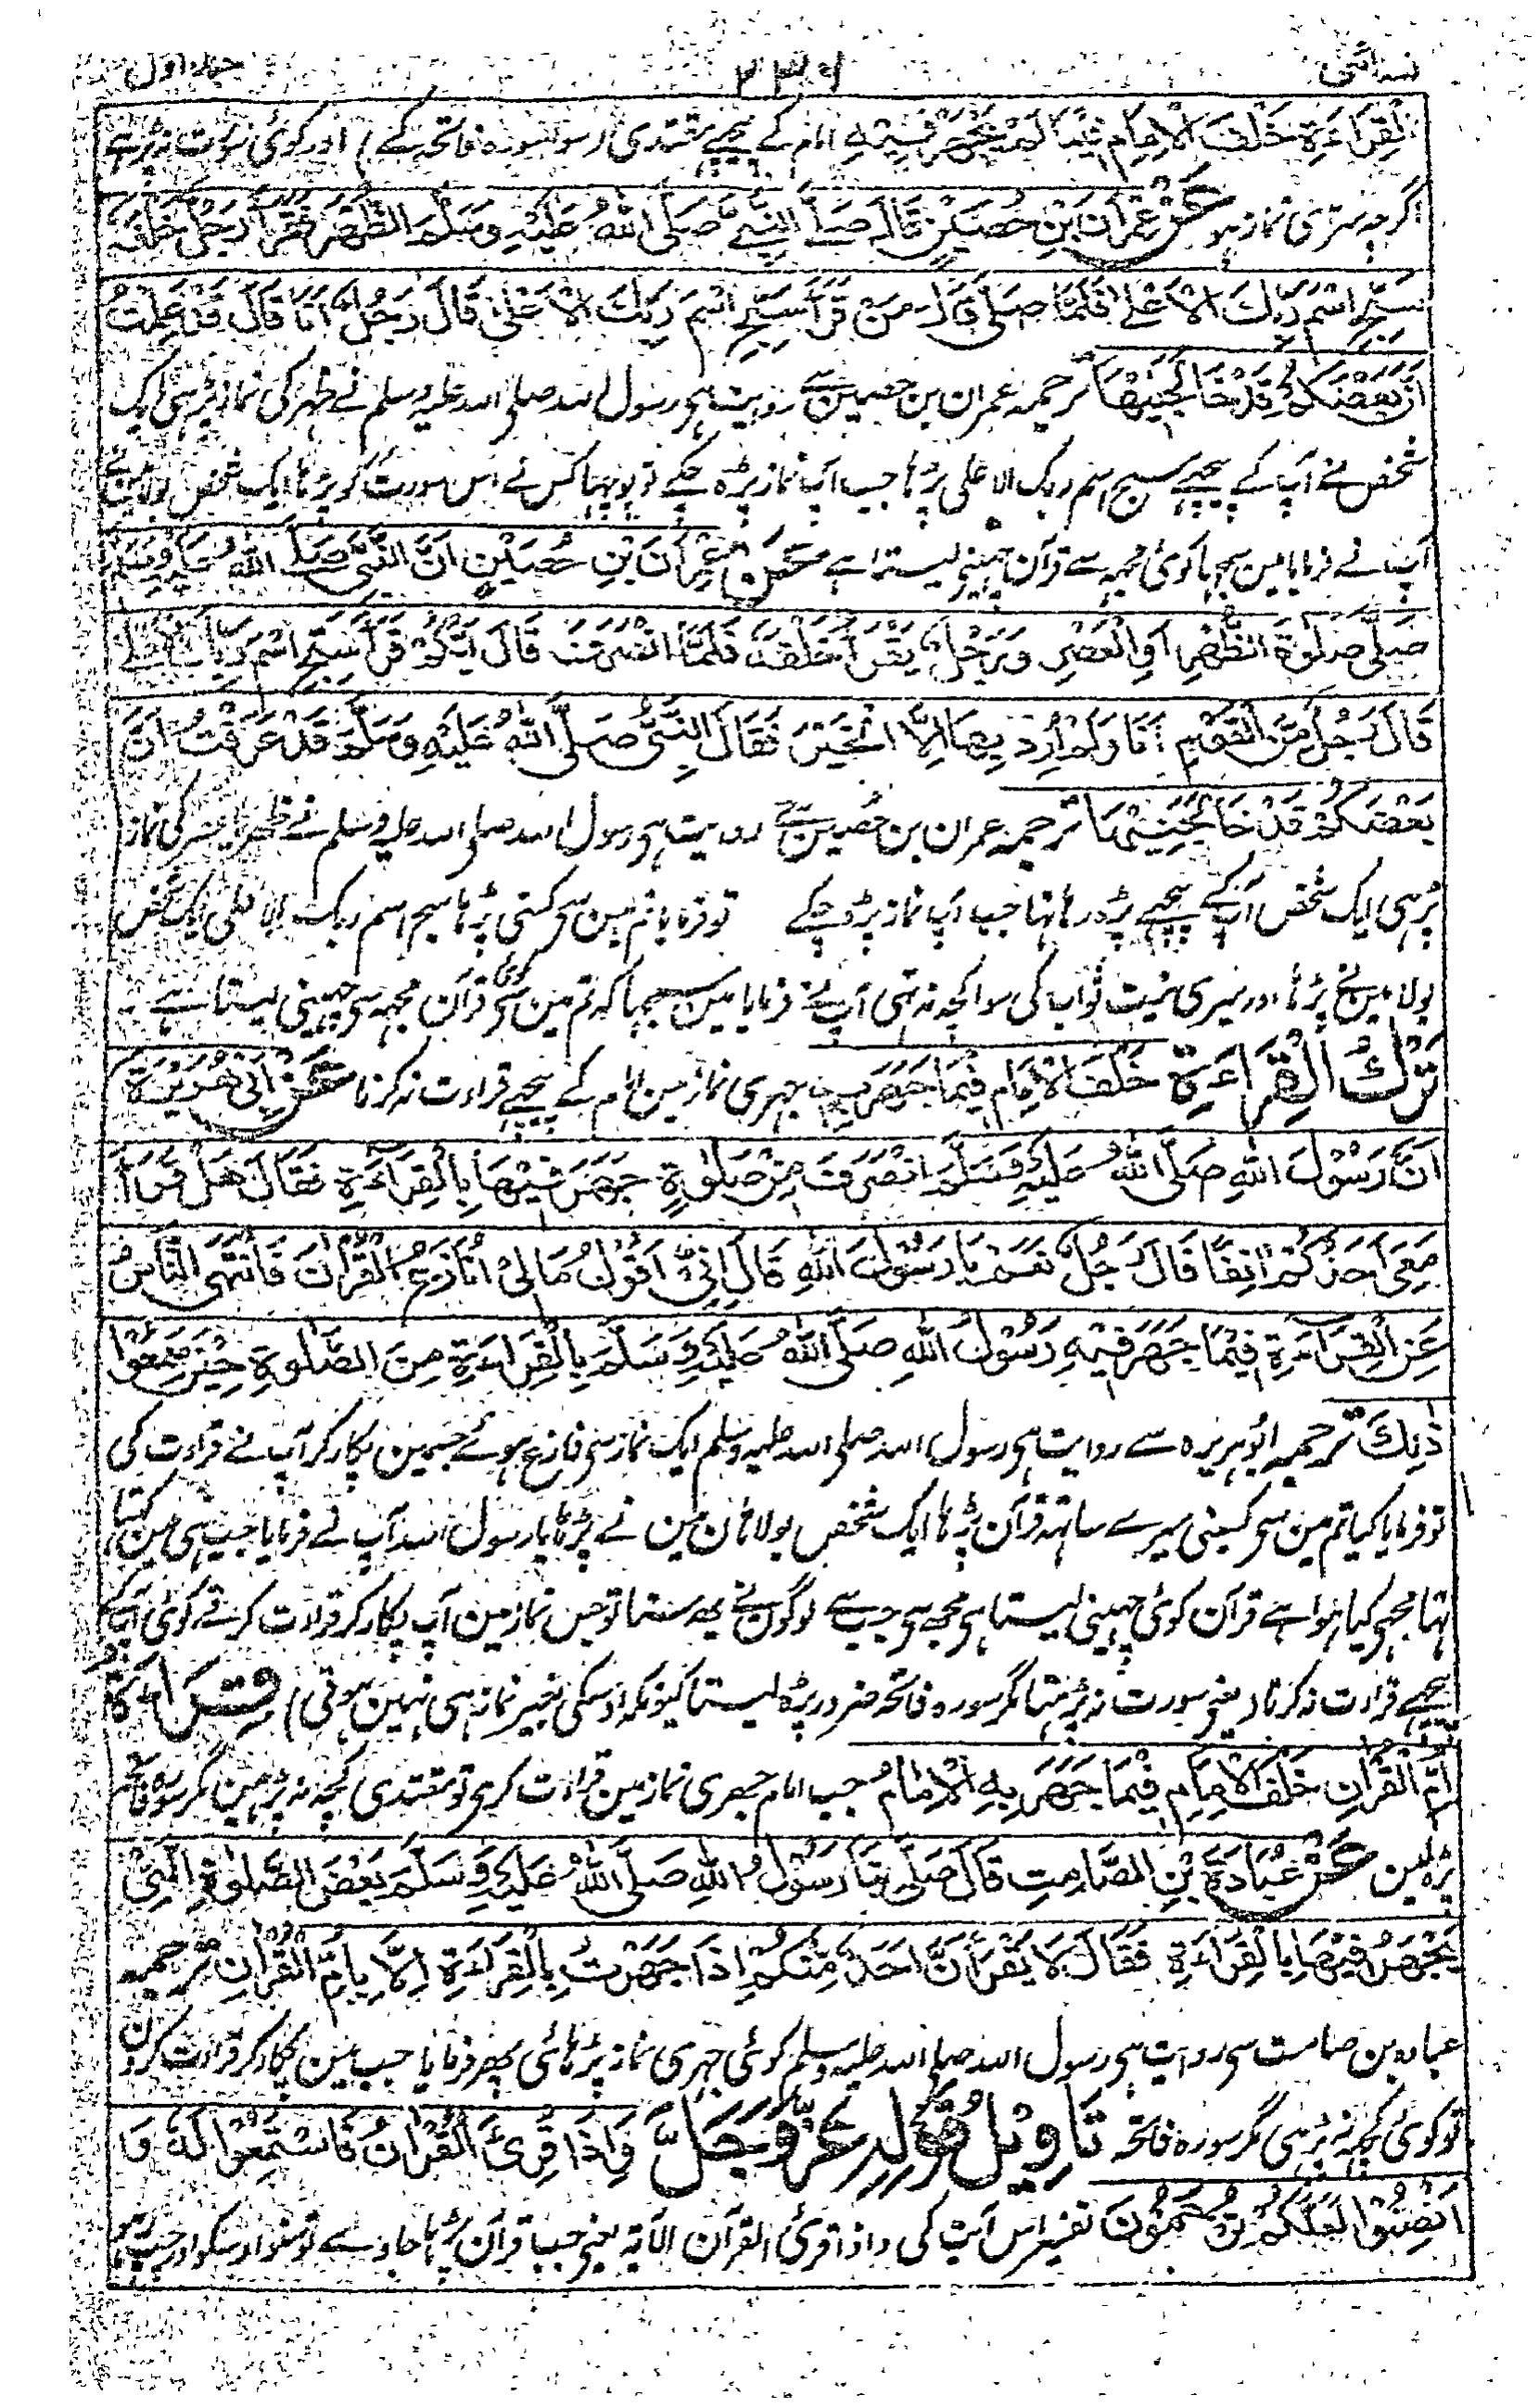 نسائی ۳۳۶ جلد اول
لْقِرَاءَةِ خَلْفَ الْاِمَامِ فِيْمَا لَمْ يَجْهَرْ فِيْهِ امام کے پیچھے مقتدی (سوا سورہ فاتحہ کے) اور کوئی سورت نہ پڑہے
اگرچہ سرّی نماز ہو عَنْ عِمْرَانَ بْنِ حُصَيْنٍ قَالَ صَلَّى النَّبِيُّ صَلَّى اللهُ عَلَيْهِ وَسَلَّمَ الظُّهْرَ فَقَرَأَ رَجُلٌ خَلْفَهُ
سَبِّحِ اسْمَ رَبِّكَ الْاَعْلٰى فَلَمَّا صَلّٰى قَالَ مَنْ قَرَأَ سَبِّحِ اسْمَ رَبِّكَ الْاَعْلٰى قَالَ رَجُلٌ اَنَا قَالَ قَدْ عَلِمْتُ
اَنَّ بَعْضَكُمْ قَدْ خَالَجَنِيْهَا ترجمہ عمران بن حصین سے روایت ہی رسول اللہ صلی اللہ علیہ وسلم نے ظہر کی نماز پڑہی ایک
شخص نے آپ کے پیچھے سبح اسم ربک الاعلی پڑہا جب آپ نماز پڑہ چکے تو پوچہا کس نے اس سورت کو پڑہا ایک شخص بولا مین نے
آپ نے فرمایا مین سمجہا کوئی مجہہ سے قرآن چہینے لیتا ہے عَنْ عِمْرَانَ بْنِ حُصَيْنٍ اَنَّ النَّبِيَّ صَلَّى اللهُ عَلَيْهِ وَسَلَّمَ
صَلّٰى صَلٰوةَ الظُّهْرِ اَوِ الْعَصْرِ وَرَجُلٌ يَقْرَأُ خَلْفَهُ فَلَمَّا انْصَرَفَ قَالَ اَيُّكُمْ قَرَأَ سَبِّحِ اسْمَ رَبِّكَ الْاَعْلٰى
قَالَ رَجُلٌ مِّنَ الْقَوْمِ اَنَا وَلَمْ اُرِدْ بِهَا اِلَّا الْخَيْرَ فَقَالَ النَّبِيُّ صَلَّى اللهُ عَلَيْهِ وَسَلَّمَ قَدْ عَرَفْتُ اَنَّ
بَعْضَكُمْ قَدْ خَالَجَنِيْهَا ترجمہ عمران بن حصین سے روایت ہی رسول اللہ صلی اللہ علیہ وسلم نے ظہر یا عصر کی نماز
پڑہی ایک شخص آپ کے پیچھے پڑہ رہا تہا جب آپ نماز پڑہ چکے تو فرمایا تم مین سی کسنی پڑہا سبح اسم ربک الاعلی ایک شخص
بولا مین نے پڑہا اور میری نیت ثواب کی سوا کچہ نہ تہی آپ نے فرمایا مین سمجہا کہ تم مین سی کوئی قرآن مجہہ سی چہینی لیتا ہے
تَرْكُ الْقِرَاءَةِ خَلْفَ الْاِمَامِ فِيْمَا جَهَرَ بِهٖ جہری نماز مین امام کے پیچھے قراءت نہ کرنا عَنْ اَبِيْ هُرَيْرَةَ
اَنَّ رَسُوْلَ اللهِ صَلَّى اللهُ عَلَيْهِ وَسَلَّمَ انْصَرَفَ مِنْ صَلٰوةٍ جَهَرَ فِيْهَا بِالْقِرَاءَةِ فَقَالَ هَلْ قَرَأَ
مَعِيَ اَحَدٌ مِّنْكُمْ اٰنِفًا قَالَ رَجُلٌ نَعَمْ يَا رَسُوْلَ اللهِ قَالَ اِنِّيْ اَقُوْلُ مَا لِيْ اُنَازَعُ الْقُرْاٰنَ فَانْتَهَى النَّاسُ
عَنِ الْقِرَاءَةِ فِيْمَا جَهَرَ فِيْهِ رَسُوْلُ اللهِ صَلَّى اللهُ عَلَيْهِ وَسَلَّمَ بِالْقِرَاءَةِ مِنَ الصَّلٰوةِ حِيْنَ سَمِعُوْا
ذٰلِكَ ترجمہ ابوہریرہ سے روایت ہی رسول اللہ صلی اللہ علیہ وسلم ایک نماز سی فارغ ہوئے جسمین پکار کر آپ نے قراءت کی
تو فرمایا کیا تم مین سی کسینی میرے ساتہہ قرآن پڑہا ایک شخص بولا ہان مین نے پڑہا یا رسول اللہ آپ نے فرمایا جب ہی مین کہتا
تہا مجہی کیا ہوا ہے قرآن کوئی چہینی لیتا ہی مجہہ سی جب سے لوگون نے یہ سنتا تو جس نماز مین آپ پکار کر قراءت کرتے کوئی آپ کے
پیچھے قراءت نہ کرتا (یعنی سورت نہ پڑہتا مگر سورہ فاتحہ ضرور پڑہ لیتا کیونکہ اوسکی بغیر نماز ہی نہین ہوتی) قِرَاءَةُ
اُمِّ الْقُرْاٰنِ خَلْفَ الْاِمَامِ فِيْمَا جَهَرَ بِهِ الْاِمَامُ جب امام جہری نماز مین قراءت کری تو مقتدی کچہہ نہ پڑہین مگر سورہ فاتحہ
پڑہ لین عَنْ عُبَادَةَ بْنِ الصَّامِتِ قَالَ صَلّٰى بِنَا رَسُوْلُ اللهِ صَلَّى اللهُ عَلَيْهِ وَسَلَّمَ بَعْضَ الصَّلٰوةِ الَّتِيْ
يُجْهَرُ فِيْهَا بِالْقِرَاءَةِ فَقَالَ لَا يَقْرَأَنَّ اَحَدٌ مِّنْكُمْ اِذَا جَهَرْتُ بِالْقِرَاءَةِ اِلَّا بِاُمِّ الْقُرْاٰنِ ترجمہ
عبادہ بن صامت سی روایت ہی رسول اللہ صلی اللہ علیہ وسلم کوئی جہری نماز پڑہائی پہر فرمایا جب مین پکار کر قراءت کرون
تو کوئی کچہہ نہ پڑہی مگر سورہ فاتحہ تَاْوِيْلُ قَوْلِهٖ عَزَّ وَجَلَّ وَاِذَا قُرِئَ الْقُرْاٰنُ فَاسْتَمِعُوْا لَهٗ وَ
اَنْصِتُوْا لَعَلَّكُمْ تُرْحَمُوْنَ تفسیر اس آیت کی واذا قرئ القرآن الآیۃ یعنی جب قرآن پڑہا جاوے تو سنو اوسکو اور چپ رہو